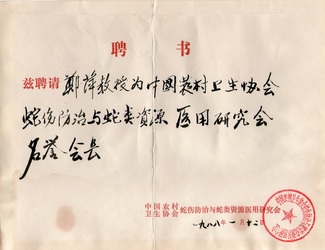 聘 书
兹聘请郑䔿教授为中国农村卫生协会
蛇伤防治与蛇类资源医用研究会
名誉会长
中国农村
卫生协会
蛇伤防治与蛇类资源医用研究会
一九八八年一月十二日